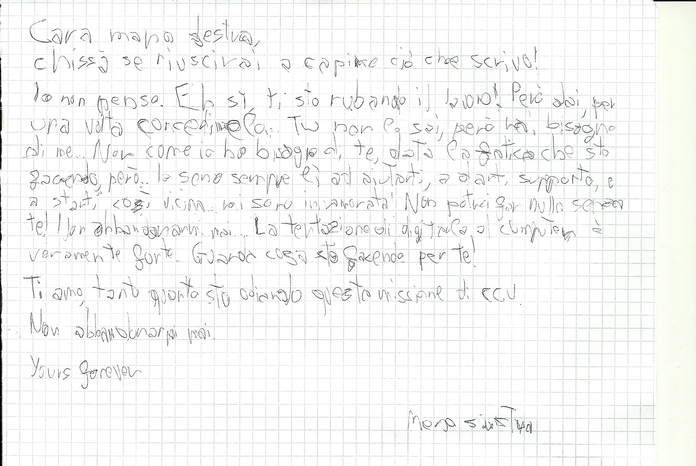 Cara mano destra,
chissà se riuscirai a capire ciò che scrivo!
Io non penso. Eh sì, ti sto rubando il lavoro! Però dai, per
una volta concedimelo. Tu non lo sai, però hai bisogno
di me.. Non come io ho bisogno di te, data la fatica che sto
facendo, però.. Io sono sempre lì ad aiutarti, a darti supporto, e
a starti così vicina.. mi sono innamorata! Non potrei far nulla senza
te! Non abbandonarmi mai... La tentazione di digitarla al computer è
veramente forte. Guarda cosa sto facendo per te!
Ti amo, tanto quanto sto odiando questa missione di
Non abbandonarmi mai.
Yours forever
Mano sinistra